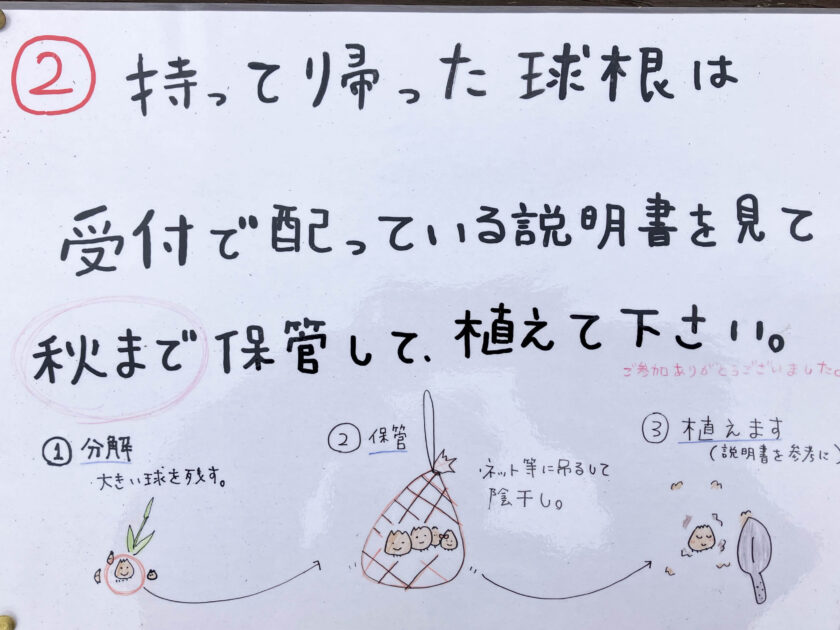 ② 持って帰った球根は
受付で配っている説明書を見て
秋まで保管して、植えて下さい。
ご参加ありがとうございました。
① 分解
大きい球を残す。
② 保管
ネット等に吊るして
陰干し。
③ 植えます
(説明書を参考に)